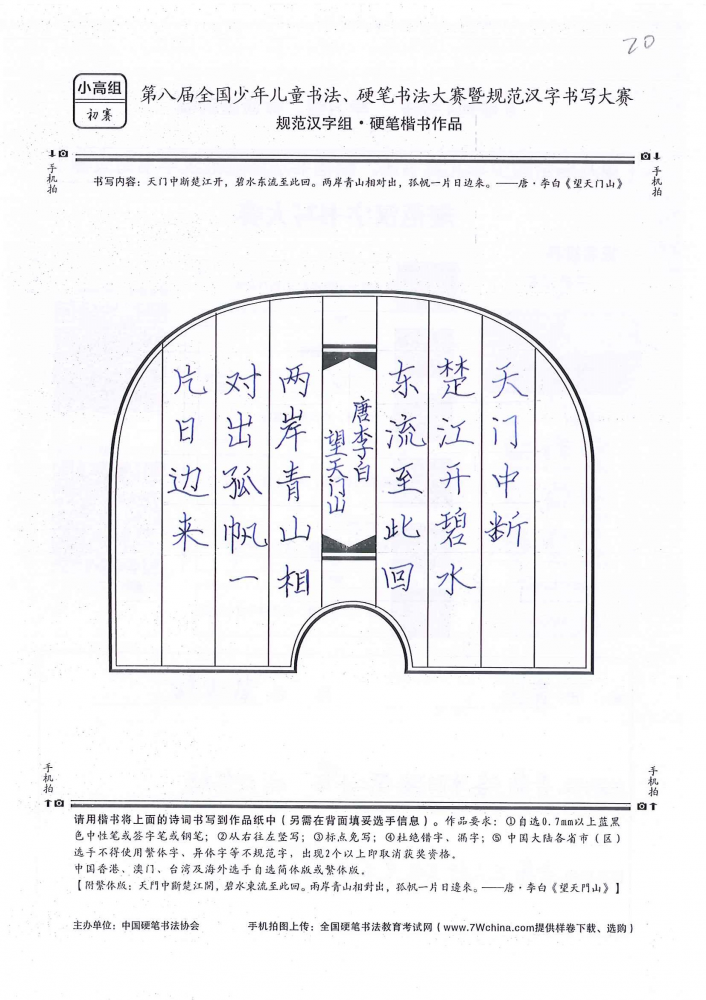 20
小高组
初赛
第八届全国少年儿童书法、硬笔书法大赛暨规范汉字书写大赛
规范汉字组·硬笔楷书作品
手机拍
手机拍
书写内容：天门中断楚江开，碧水东流至此回。两岸青山相对出，孤帆一片日边来。——唐·李白《望天门山》
天门中断
楚江开碧水
东流至此回
唐李白
望天门山
两岸青山相
对出孤帆一
片日边来
手机拍
手机拍
请用楷书将上面的诗词书写到作品纸中（另需在背面填妥选手信息）。作品要求：①自选0.7mm以上蓝黑
色中性笔或签字笔或钢笔；②从右往左竖写；③标点免写；④杜绝错字、漏字；⑤中国大陆各省市（区）
选手不得使用繁体字、异体字等不规范字，出现2个以上即取消获奖资格。
中国香港、澳门、台湾及海外选手自选简体版或繁体版。
【附繁体版：天門中斷楚江開，碧水東流至此回。兩岸青山相對出，孤帆一片日邊來。——唐·李白《望天門山》】
主办单位：中国硬笔书法协会
手机拍图上传：全国硬笔书法教育考试网（www.7Wchina.com提供样卷下载、选购）